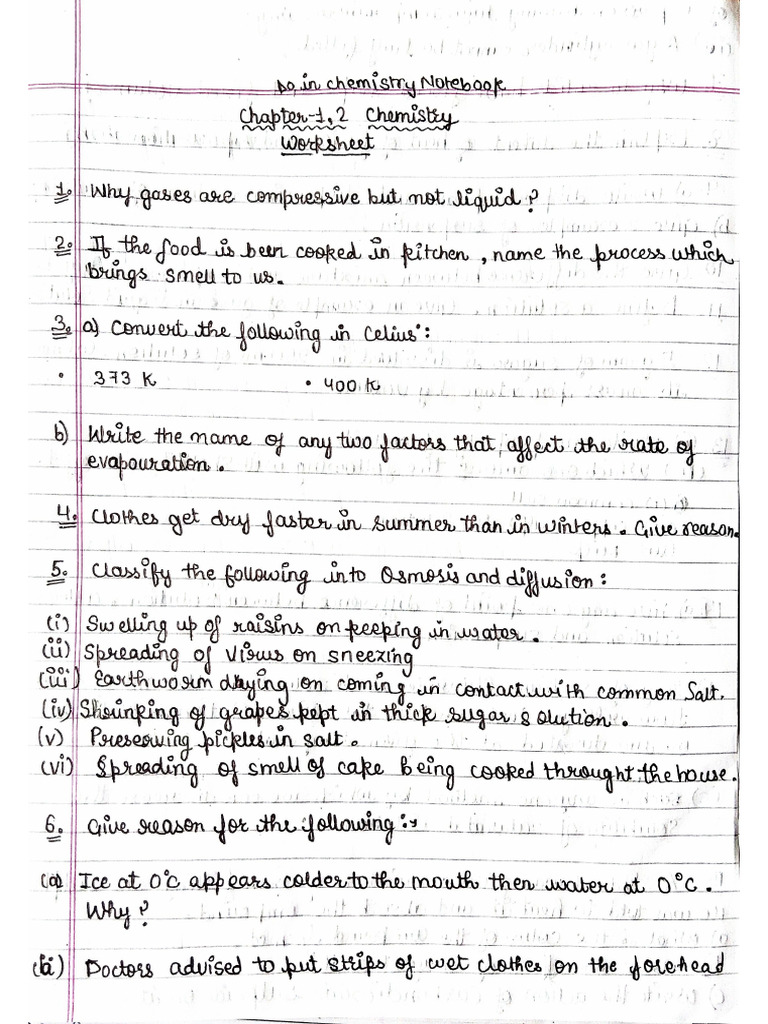 Do in chemistry Notebook
Chapter-1,2 Chemistry
Worksheet
1. Why gases are compressive but not liquid?
2. If the food is been cooked in kitchen, name the process which
brings smell to us.
3. a) Convert the following in Celius':
• 373 K • 400 K
b) Write the name of any two factors that, affect the rate of
evapouration.
4. Clothes get dry faster in summer than in winters. Give reason.
5. Classify the following into Osmosis and diffusion:
(i) Swelling up of raisins on keeping in water.
(ii) Spreading of Virus on sneezing
(iii) Earthworm drying on coming in contact with common Salt.
(iv) Shrinking of grapes kept in thick sugar solution.
(v) Preserving pickles in salt.
(vi) Spreading of smell of cake being cooked throught the house.
6. Give reason for the following:-
(a) Ice at 0°C appears colder to the mouth then water at 0°C.
Why?
(b) Doctors advised to put strips of wet clothes on the forehead